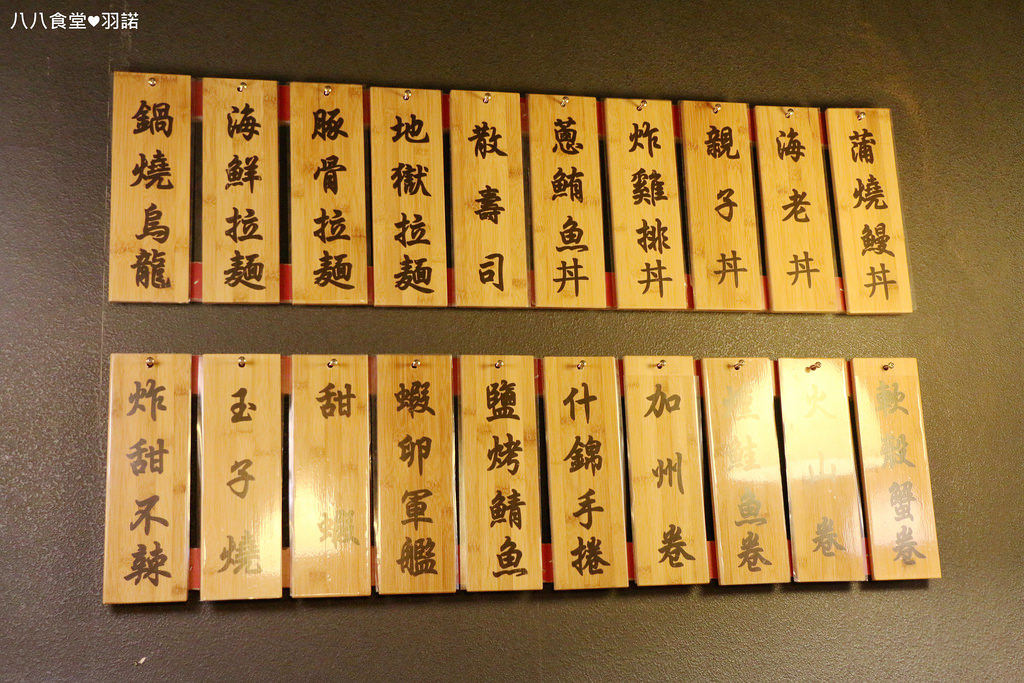 八八食堂♥羽諾
鍋燒烏龍
海鮮拉麵
豚骨拉麵
地獄拉麵
散壽司
蔥鮪魚丼
炸雞排丼
親子丼
海老丼
蒲燒鰻丼
炸甜不辣
玉子燒
甜蝦
蝦卵軍艦
鹽烤鯖魚
什錦手捲
加州卷
鮭魚卷
火山卷
軟殼蟹卷